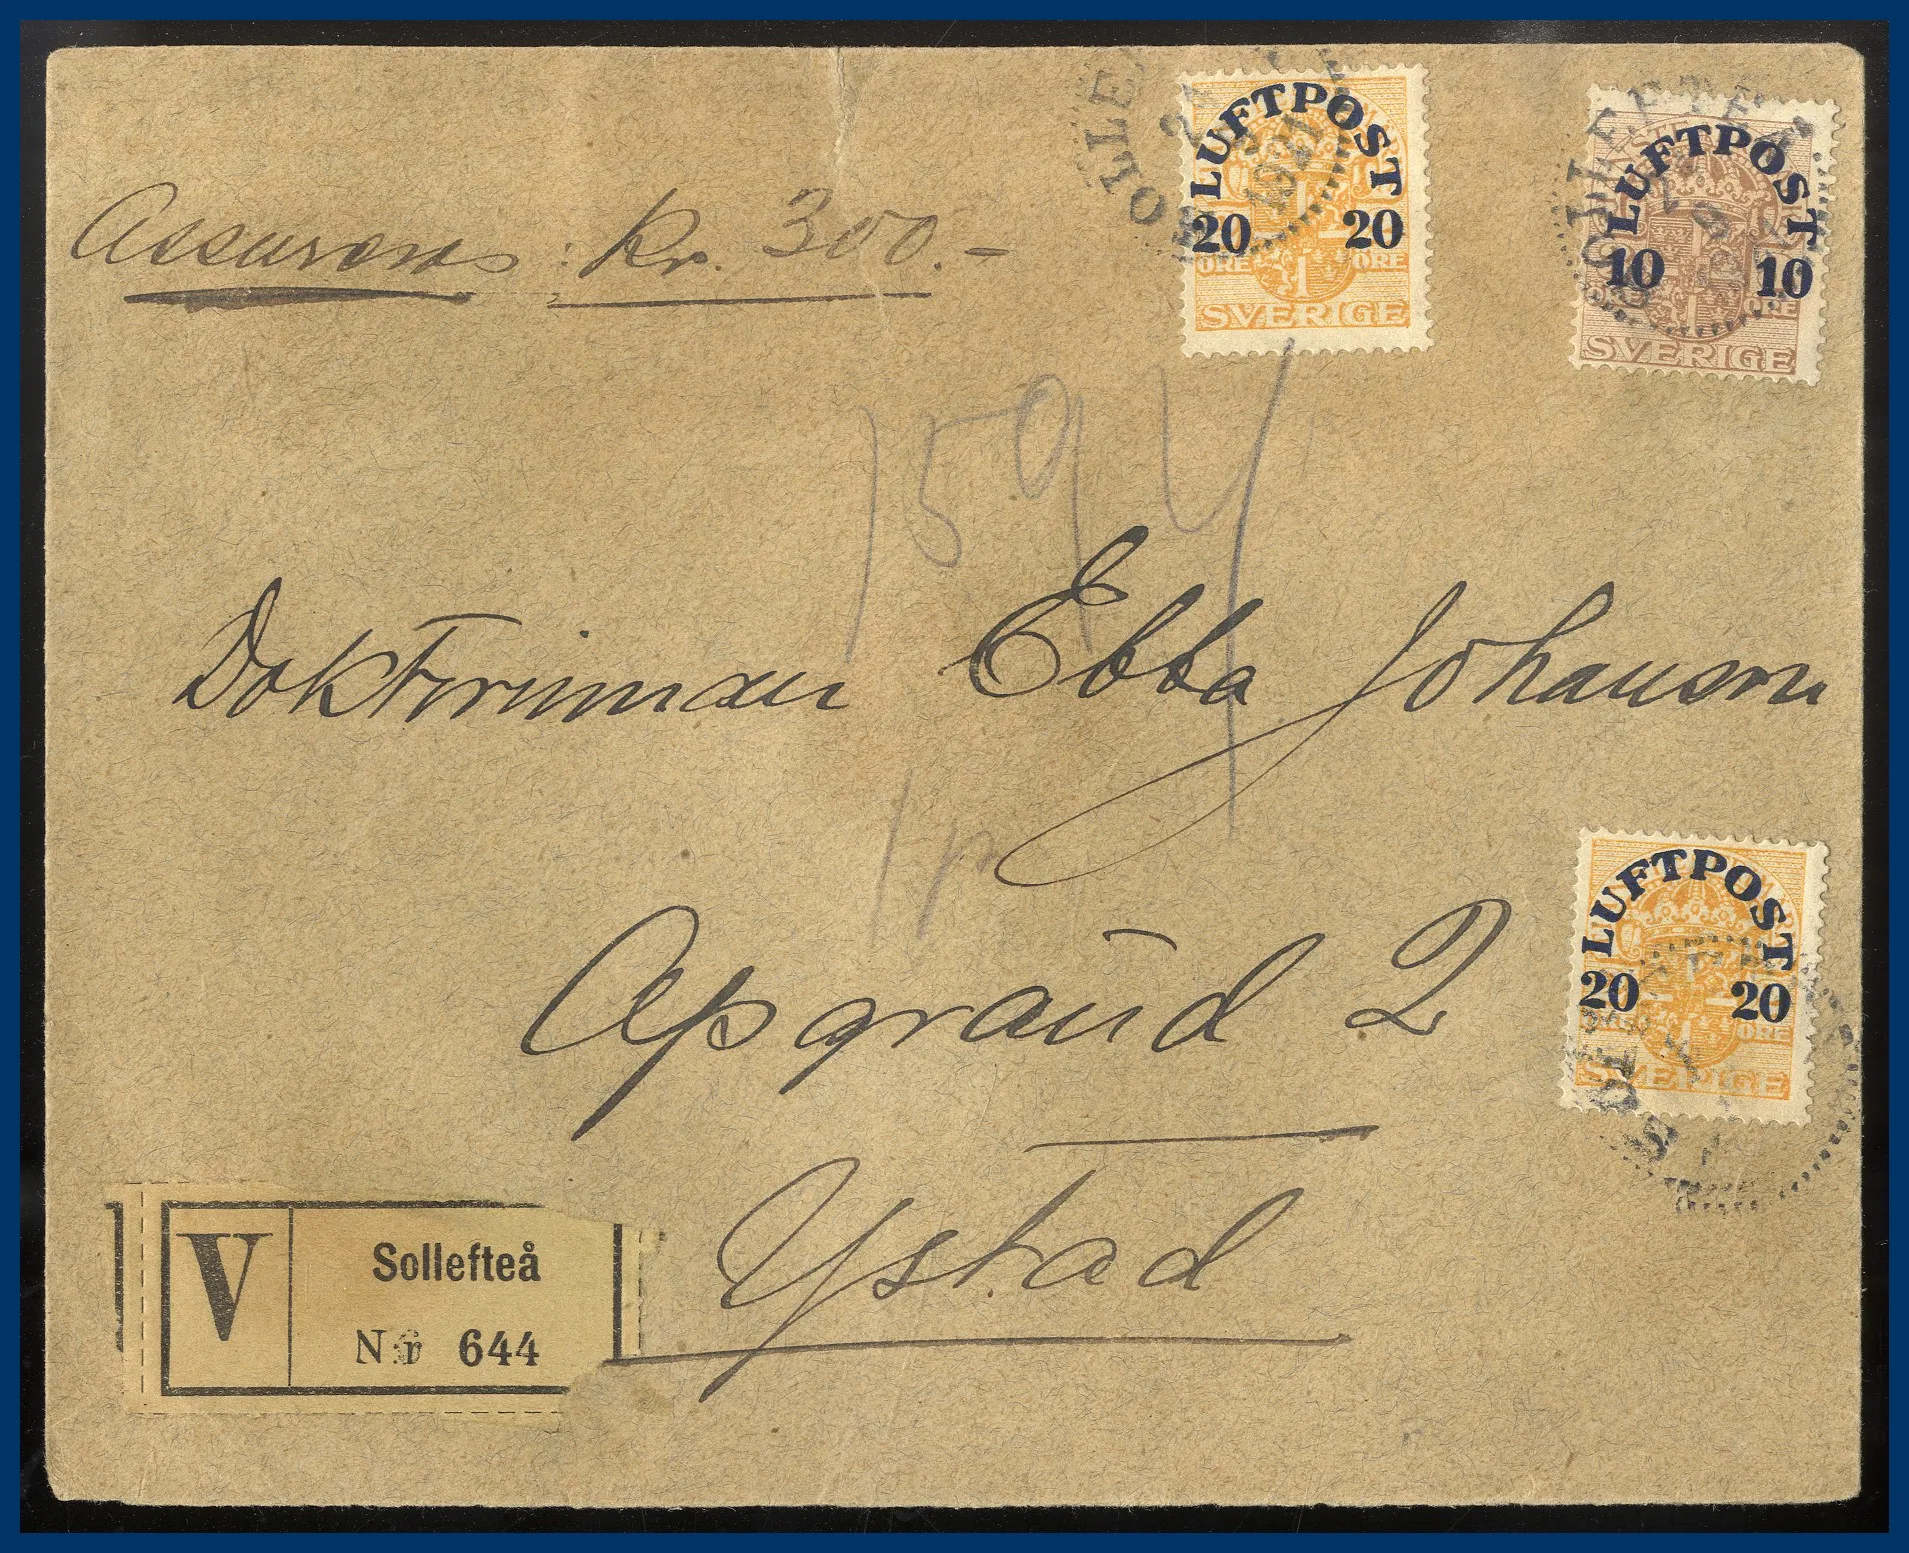 SOLLE
LUFTPOST
20 20
ÖRE ÖRE
SVERIGE
1921
LUFTPOST
10 10
ÖRE
SVERIGE
Assurans: Kr. 300.-
1594
Doktorinnan Ebba Johanson
Apgränd 2
Ystad
LUFTPOST
20 20
ÖRE
SVERIGE
V
Sollefteå
N:r 644